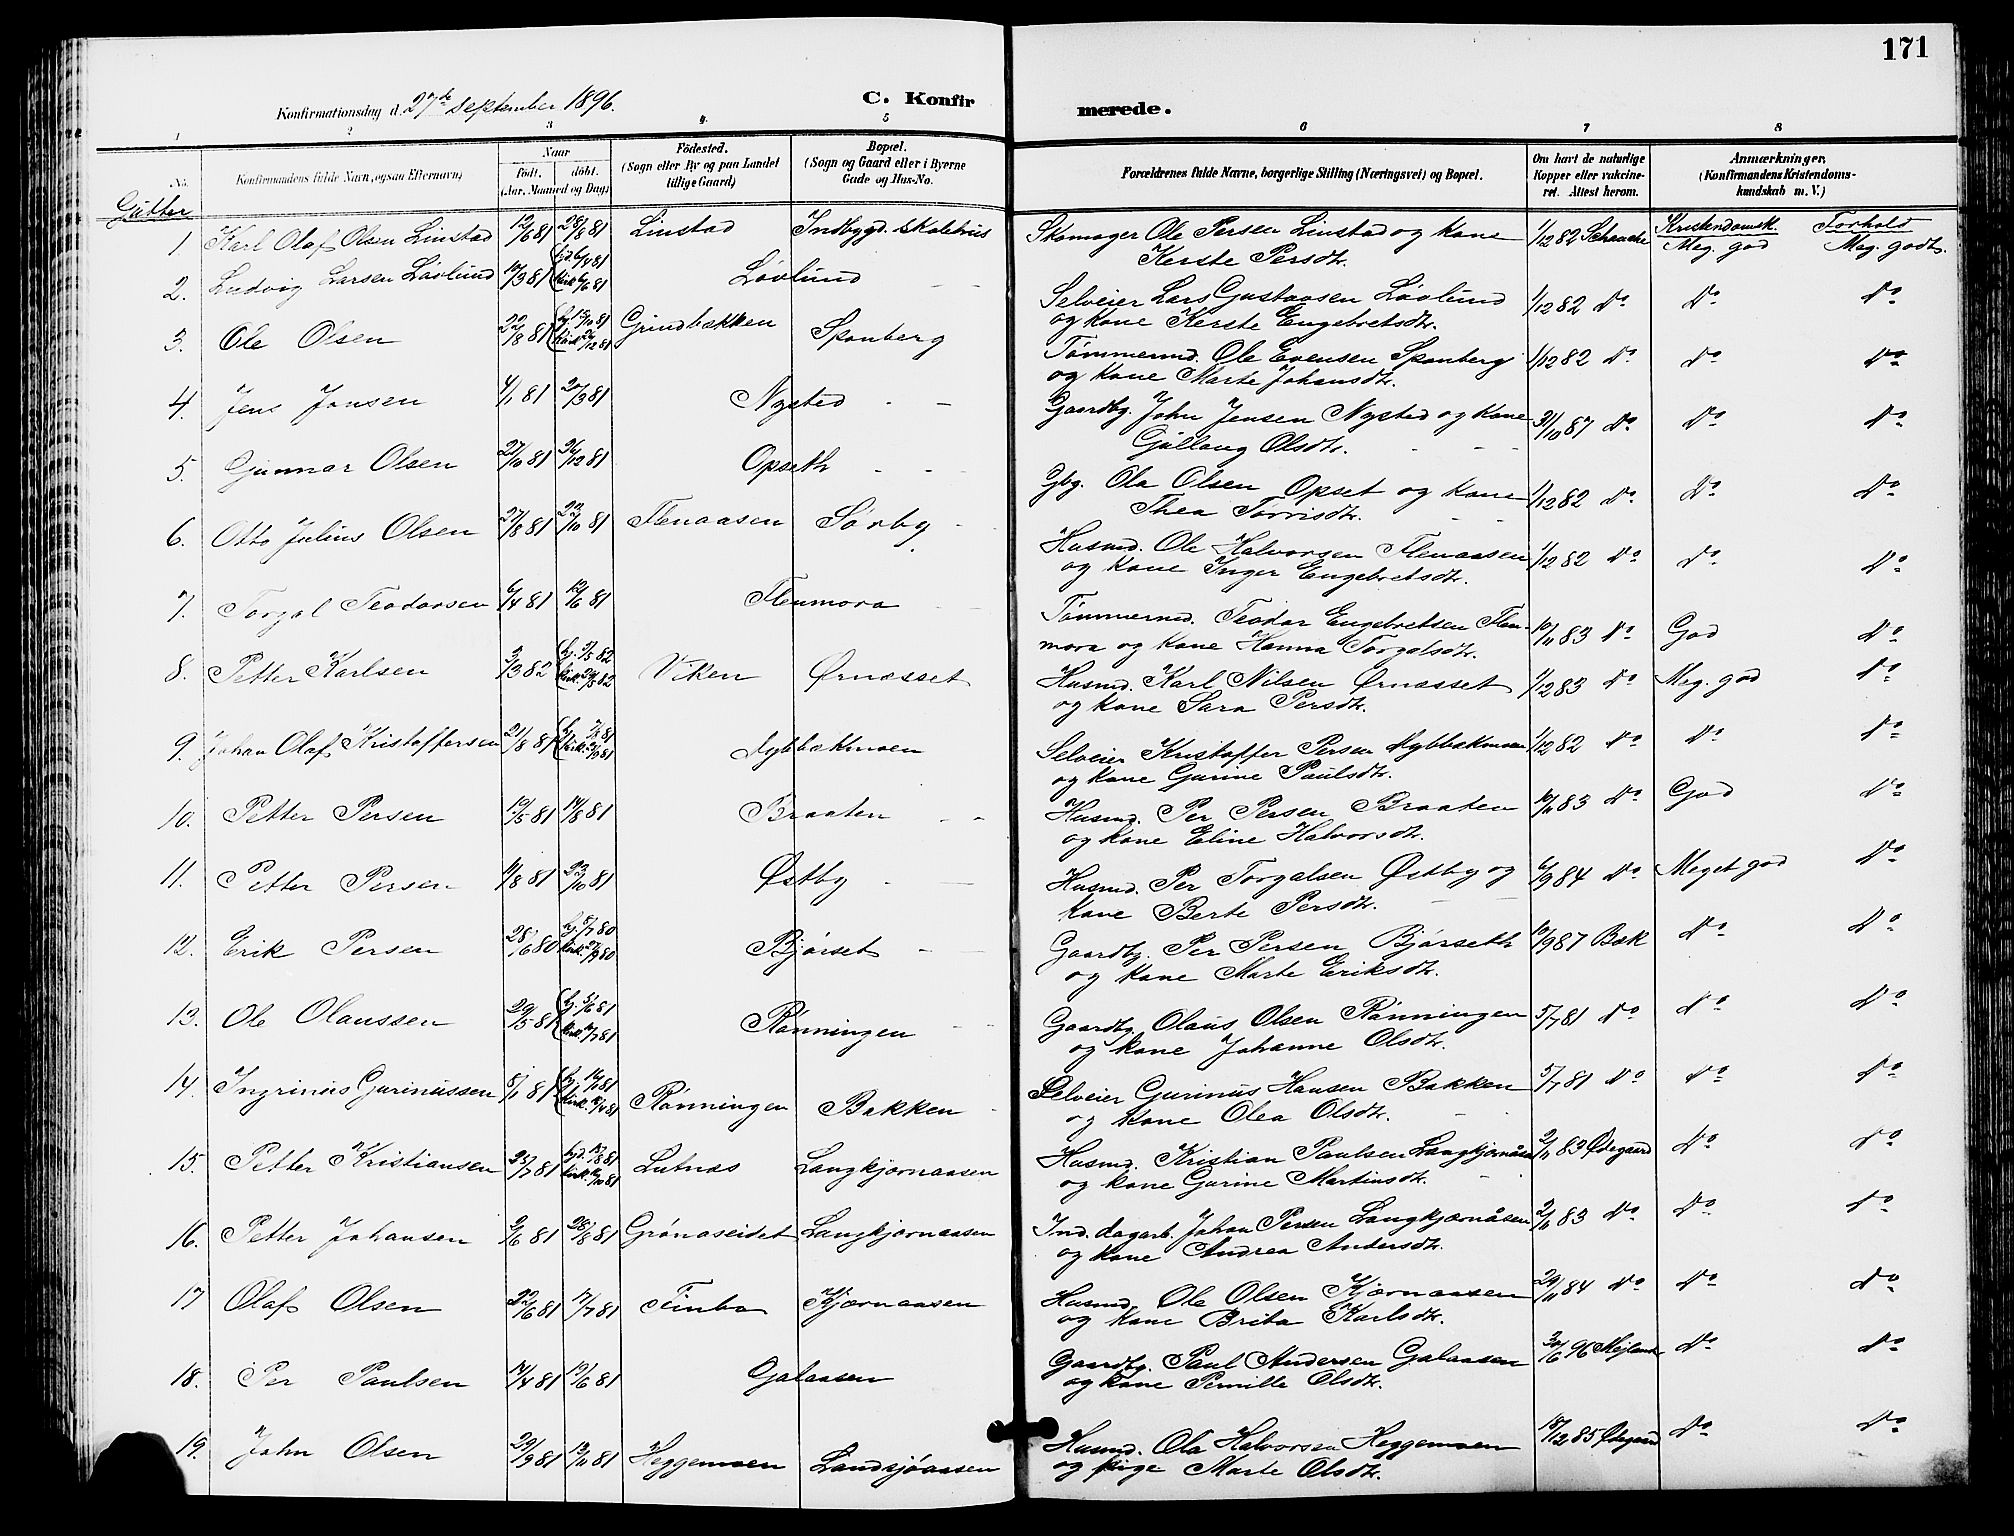 171
Konfirmationsdag d. 27de September 1896.
C. Konfirmerede.
1 2 3 4 5 6 7 8
No. Konfirmandens fulde Navn, ogsaa Efternavn. Naar født. døbt. (Aar, Maaned og Dag) Fødested. (Sogn eller By og paa Landet tillige Gaard) Bopæl. (Sogn og Gaard eller i Byerne Gade og Hus-No. Forældrenes fulde Navne, borgerlige Stilling (Næringsvei) og Bopæl. Om havt de naturlige Kopper eller vakcineret. Attest herom. Anmærkninger, (Konfirmandens Kristendomskundskab m. V.)
Gutter
Kristendomsk. Forhold
1 Karl Olaf Olsen Linstad 12/6 81 28/8 81 Linstad Indbygd. Skolehus Skomager Ole Persen Linstad og Kone 1/12 82 Schanche Meg. god Meg. godt.
Kerste Persdtr.
2. Ludvig Larsen Løvlund 10/3 81 hjd. 6/4 81 kirk. 6/6 81 Løvlund Selveier Lars Gustavsen Løvlund 1/12 82 do do do
og Kone Kerste Engebretsdtr.
3. Ole Olsen 22/8 81 hj. 13/10 81 kirk. 26/12 81 Grindbækken Spanberg Tømmermd. Ole Evensen Spanberg 1/12 82 do do do
og Kone Marte Johansdtr.
4. Jens Jonsen 4/1 81 27/3 81 Nysted Gaardbg. John Jensen Nysted og Kone 31/10 87 do do do
Gullaug Olsdtr.
5. Gunnar Olsen 27/10 81 26/12 81 Opseth Gbg. Ola Olsen Opset og Kone 1/12 82 do do do
Thea Torrisdtr.
6. Otto Julius Olsen 27/8 81 22/10 81 Flenaasen Sørby Husmd. Ole Halvorsen Flenaasen 1/12 82 do do do
og Kone Inger Engebretsdtr.
7. Torgal Teodorsen 6/4 81 12/6 81 Flenmora Tømmermd. Teodor Engebretsen Flen- 10/11 83 do God do
mora og Kone Hanna Torgalsdtr.
8. Petter Karlsen 3/3 82 hj. 7/5 82 kirk. 28/5 82 Viken Ørnæsset Husmd. Karl Nilsen Ørnæsset 1/12 83 do Meg. god do
og Kone Sara Persdtr.
9. Johan Olaf Kristoffersen 21/8 81 Nybbækmoen Selveier Kristoffer Persen Nybbækmoen 1/12 82 do do do
og Kone Gurine Paulsdtr.
10. Petter Persen 19/5 81 14/8 81 Braaten Husmd. Per Persen Braaten 10/11 83 do God do
og Kone Eline Halvorsdtr.
11. Petter Persen 11/8 81 22/10 81 Østby Husmd. Per Torgalsen Østby og 6/9 84 do Meget god do
Kone Berte Persdtr.
12. Erik Persen 28/6 80 hj. 8/7 80 kirk. 27/9 80 Bjørset Gaardbg. Per Persen Bjørseth 10/9 87 Bæk do do
og Kone Marte Eriksdtr.
13. Ole Olaussen 29/5 81 hj. 5/6 81 kirk. Rønningen Gaardbg. Olaus Olsen Rønningen 5/7 81 do do do
og Kone Johanne Olsdtr.
14. Ingrinus Gurinussen 8/1 81 Rønningen Bakken Selveier Gurinus Hansen Bakken 5/7 81 do do do
og Kone Olea Olsdtr.
15. Petter Kristiansen 23/7 81 Lutnæs Langkjørnaasen Husmd. Kristian Paulsen Langkjørnåsen 2/11 83 Ødegaard do do
og Kone Gurine Martinsdtr.
16. Petter Johansen 2/6 81 28/8 81 Grønoseidet Langkjørnaasen Ind. dagarb. Johan Persen Langkjærnåsen 2/11 83 do do do
og Kone Andrea Andersdtr.
17 Olaf Olsen 22/6 81 17/7 81 Finbo Kjærnaasen Husmd. Ole Olsen Kjærnaasen 29/11 84 do do do
og Kone Brita Karlsdtr.
18. Per Paulsen 14/4 81 12/6 81 Galaasen Gaardbg. Paul Andersen Galaasen 30/6 96 Mejlænder do do
og Kone Pernille Olsdtr.
19. John Olsen 29/9 81 13/11 81 Heggemoen Landsjøaasen Husmd. Ola Halvorsen Heggemoen 18/12 85 Ødegaard do do
og pige Marte Olsdtr.